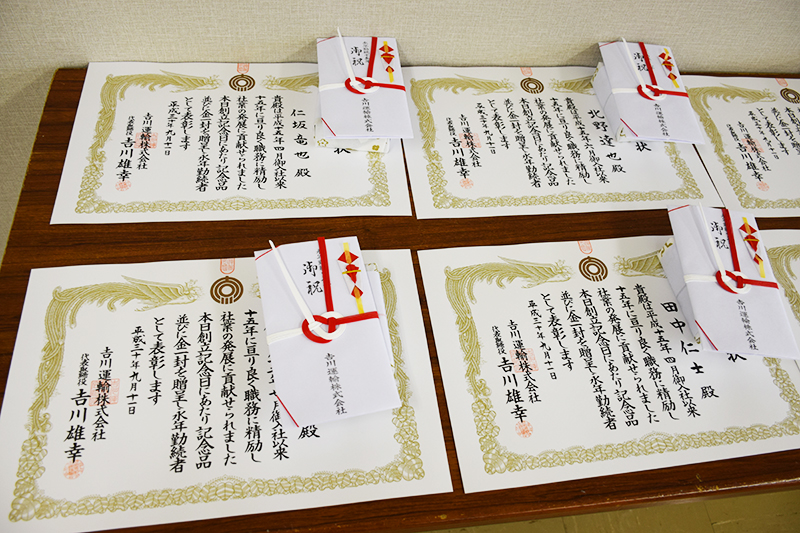 状
仁坂竜也殿
貴殿は平成十五年四月御入社以来
十五年に亘り良く職務に精励し
社業の発展に貢献せられました
本日創立記念日にあたり記念品
並びに金一封を贈呈し永年勤続者
として表彰します
平成三十年九月十一日
吉川運輸株式会社
代表取締役 吉川雄幸
御祝
吉川運輸株式会社
状
北野達也殿
貴殿は平成十五年六月御入社以来
十五年に亘り良く職務に精励し
社業の発展に貢献せられました
本日創立記念日にあたり記念品
並びに金一封を贈呈し永年勤続者
として表彰します
平成三十年九月十一日
吉川運輸株式会社
代表取締役 吉川雄幸
御祝
吉川運輸株式会社
として表彰します
平成三十年九月十一日
吉川運輸株式会社
代表取締役 吉川雄幸
殿
月御入社以来
十五年に亘り良く職務に精励し
社業の発展に貢献せられました
本日創立記念日にあたり記念品
並びに金一封を贈呈し永年勤続者
として表彰します
平成三十年九月十一日
吉川運輸株式会社
代表取締役 吉川雄幸
御祝
吉川運輸株式会社
状
田中仁士殿
貴殿は平成十五年四月御入社以来
十五年に亘り良く職務に精励し
社業の発展に貢献せられました
本日創立記念日にあたり記念品
並びに金一封を贈呈し永年勤続者
として表彰します
平成三十年九月十一日
吉川運輸株式会社
代表取締役 吉川雄幸
御祝
吉川運輸株式会社